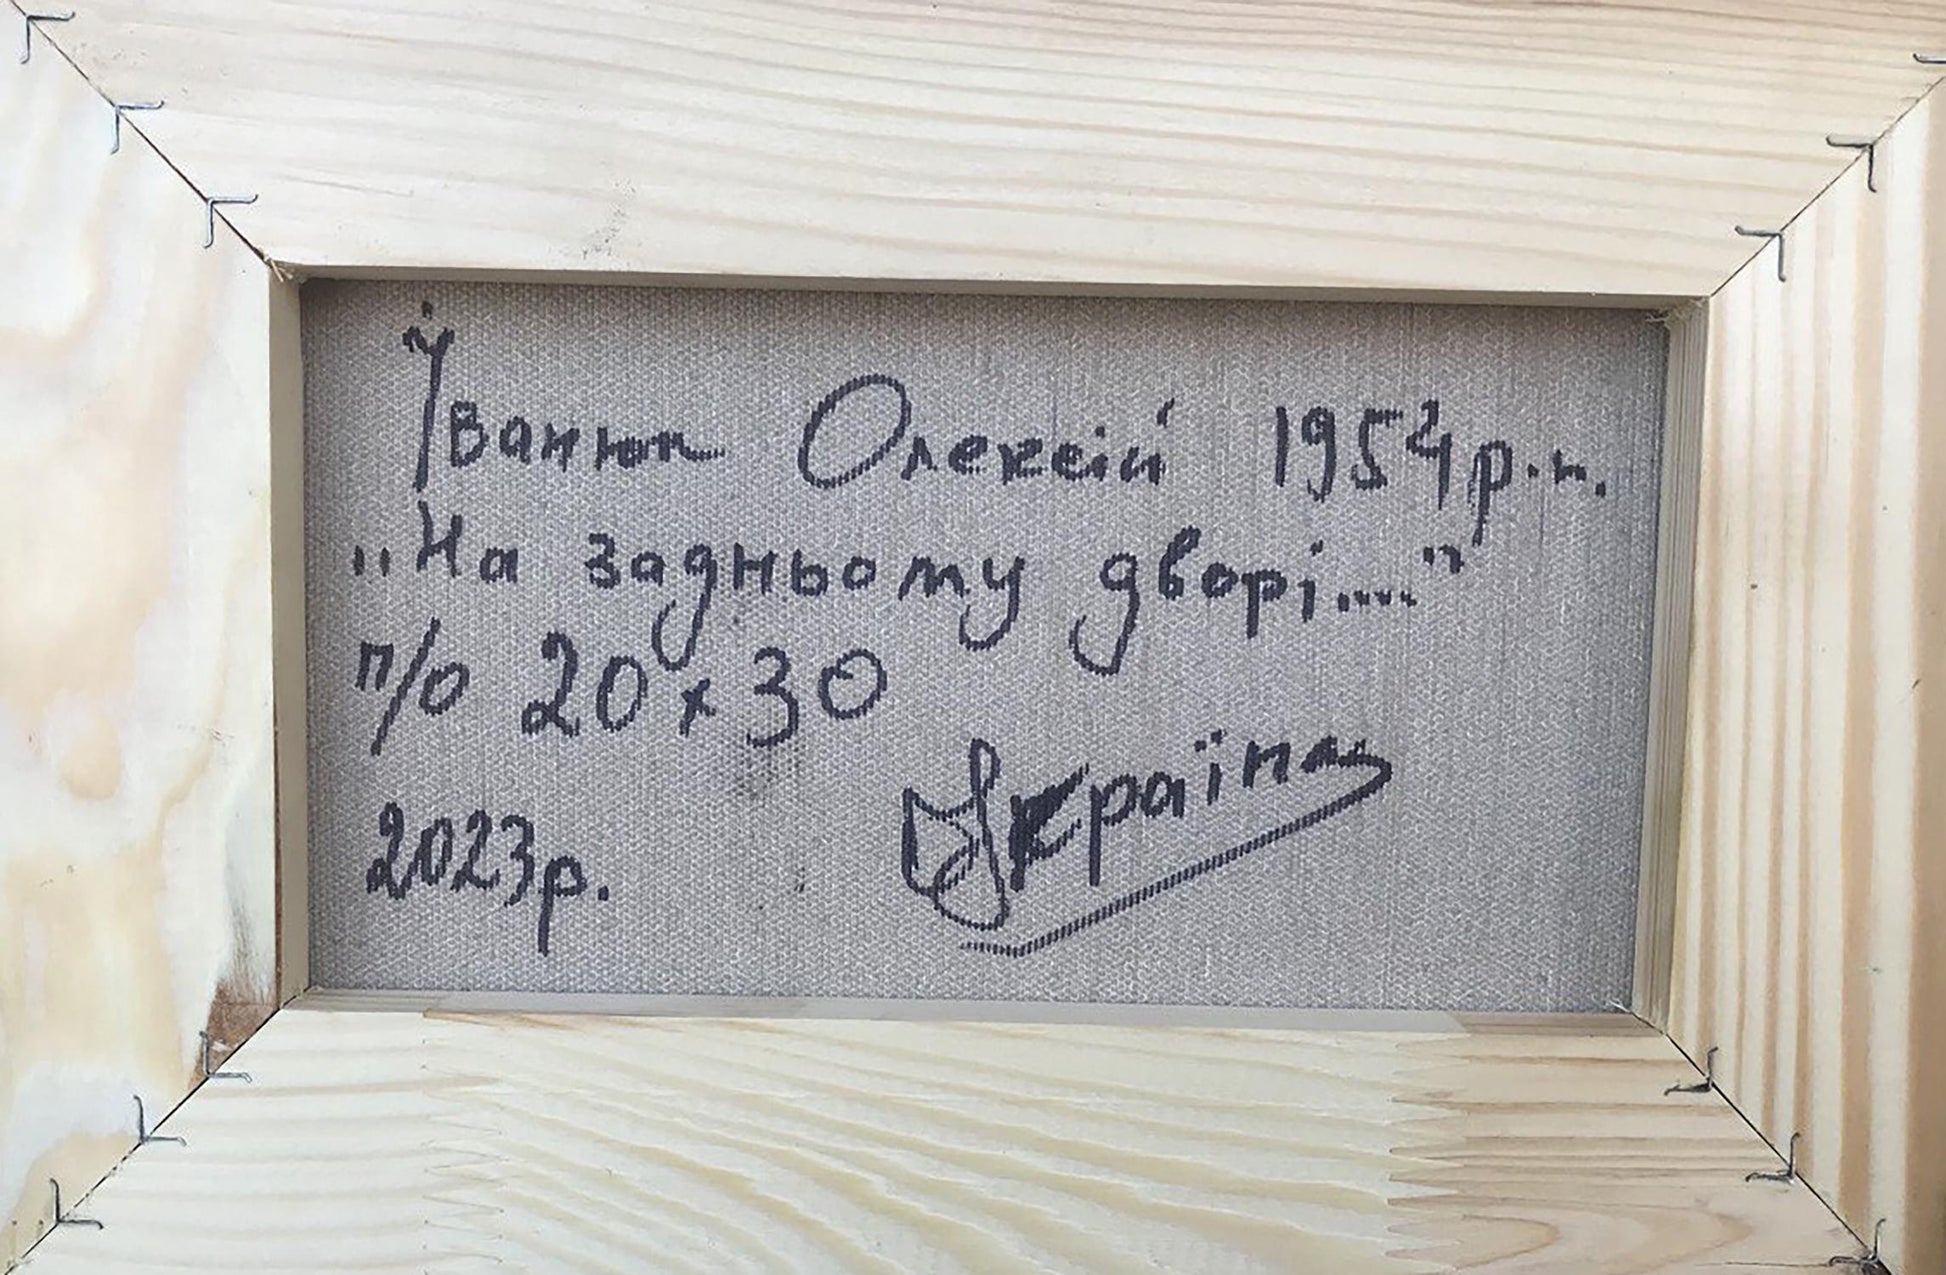 Іванюк Олексій 1954 р.н.
„На задньому дворі...."
п/о 20х30
2023р.
Україна